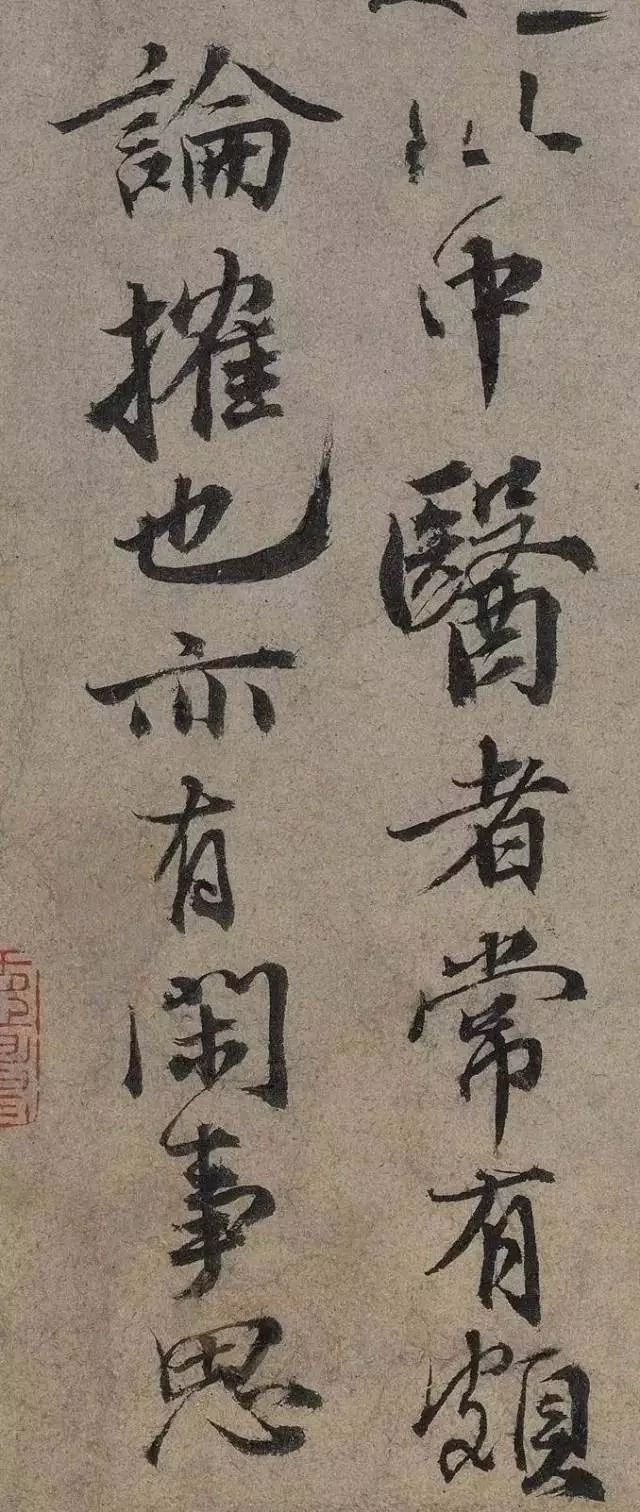 中醫者常有頗
論搉也亦有閑事思